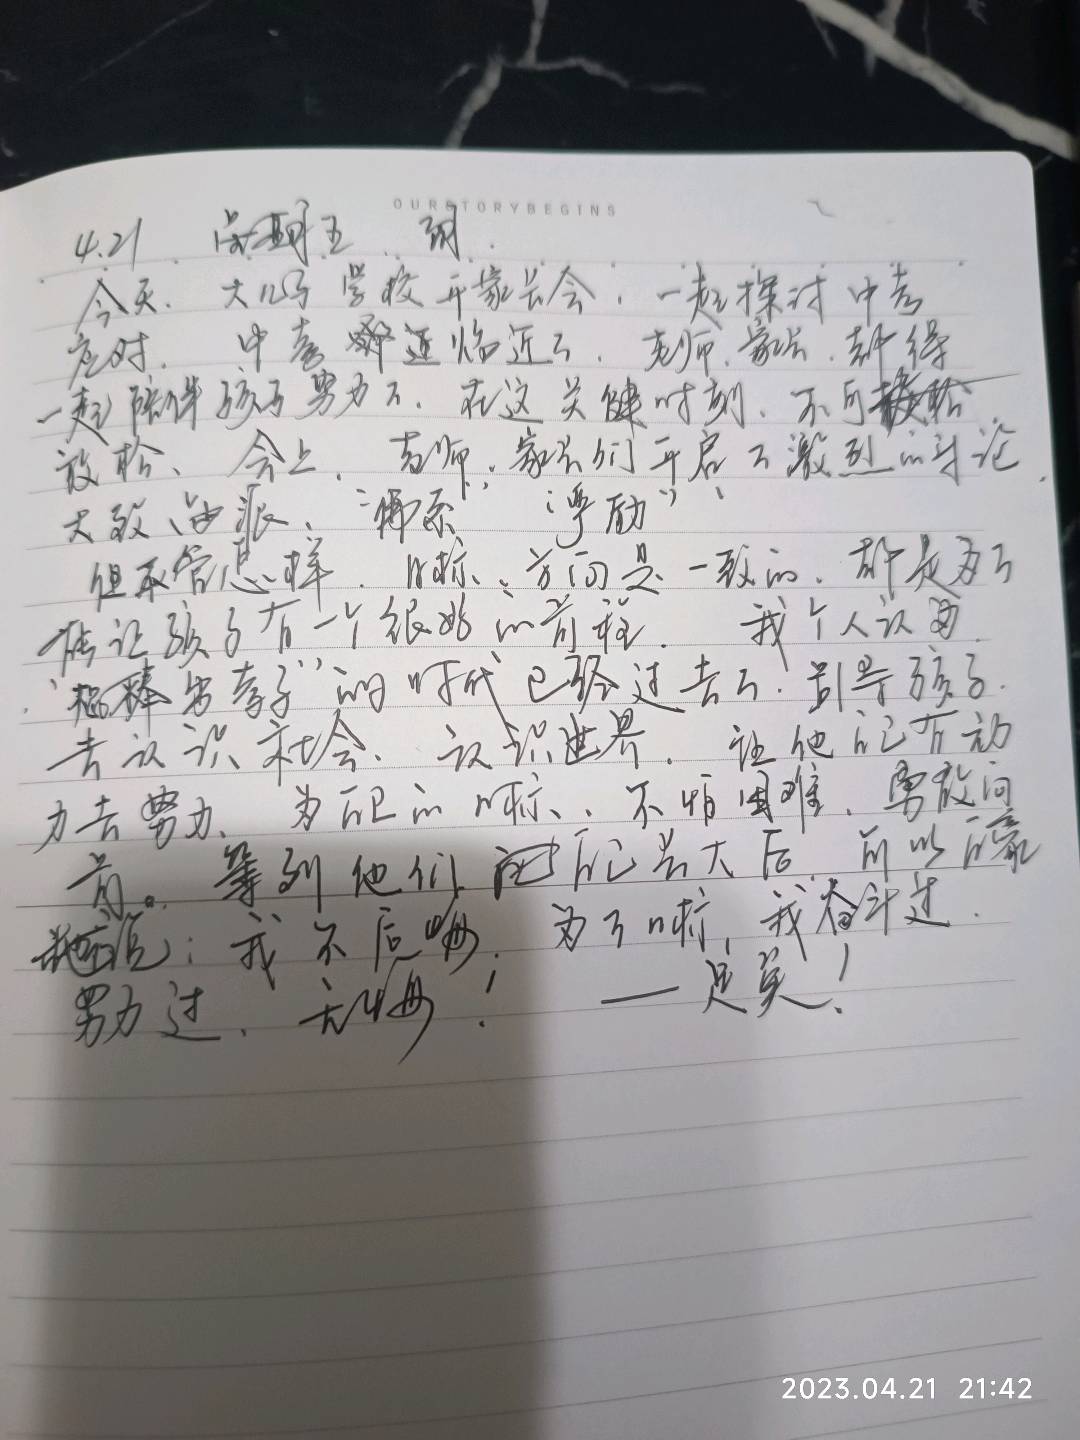 OURSTORYBEGINS
4.21 星期五 阴.
今天. 大儿子学校开家长会. 一起探讨中考
应对. 中考 逼临近了. 老师.家长.都得
一起陪伴孩子努力了. 在这关健时刻. 不可
放松、会上. 老师.家长们开启了激烈的讨论.
大致 派、
但不管怎样. 目标、方向是一致的. 都是为了
让孩子有一个很好的前程. 我个人认为.
"棍棒出孝子"的时代已经过去了. 引导孩子.
去认识社会、认识世界. 让他自己有动
力去努力、为自己的目标、不怕困难. 勇敢向
前。等到他们 自己长大后. 可以自豪
地说: 我不后悔. 为了目标, 我奋斗过.
努力过. 无悔! ——足矣!
2023.04.21 21:42